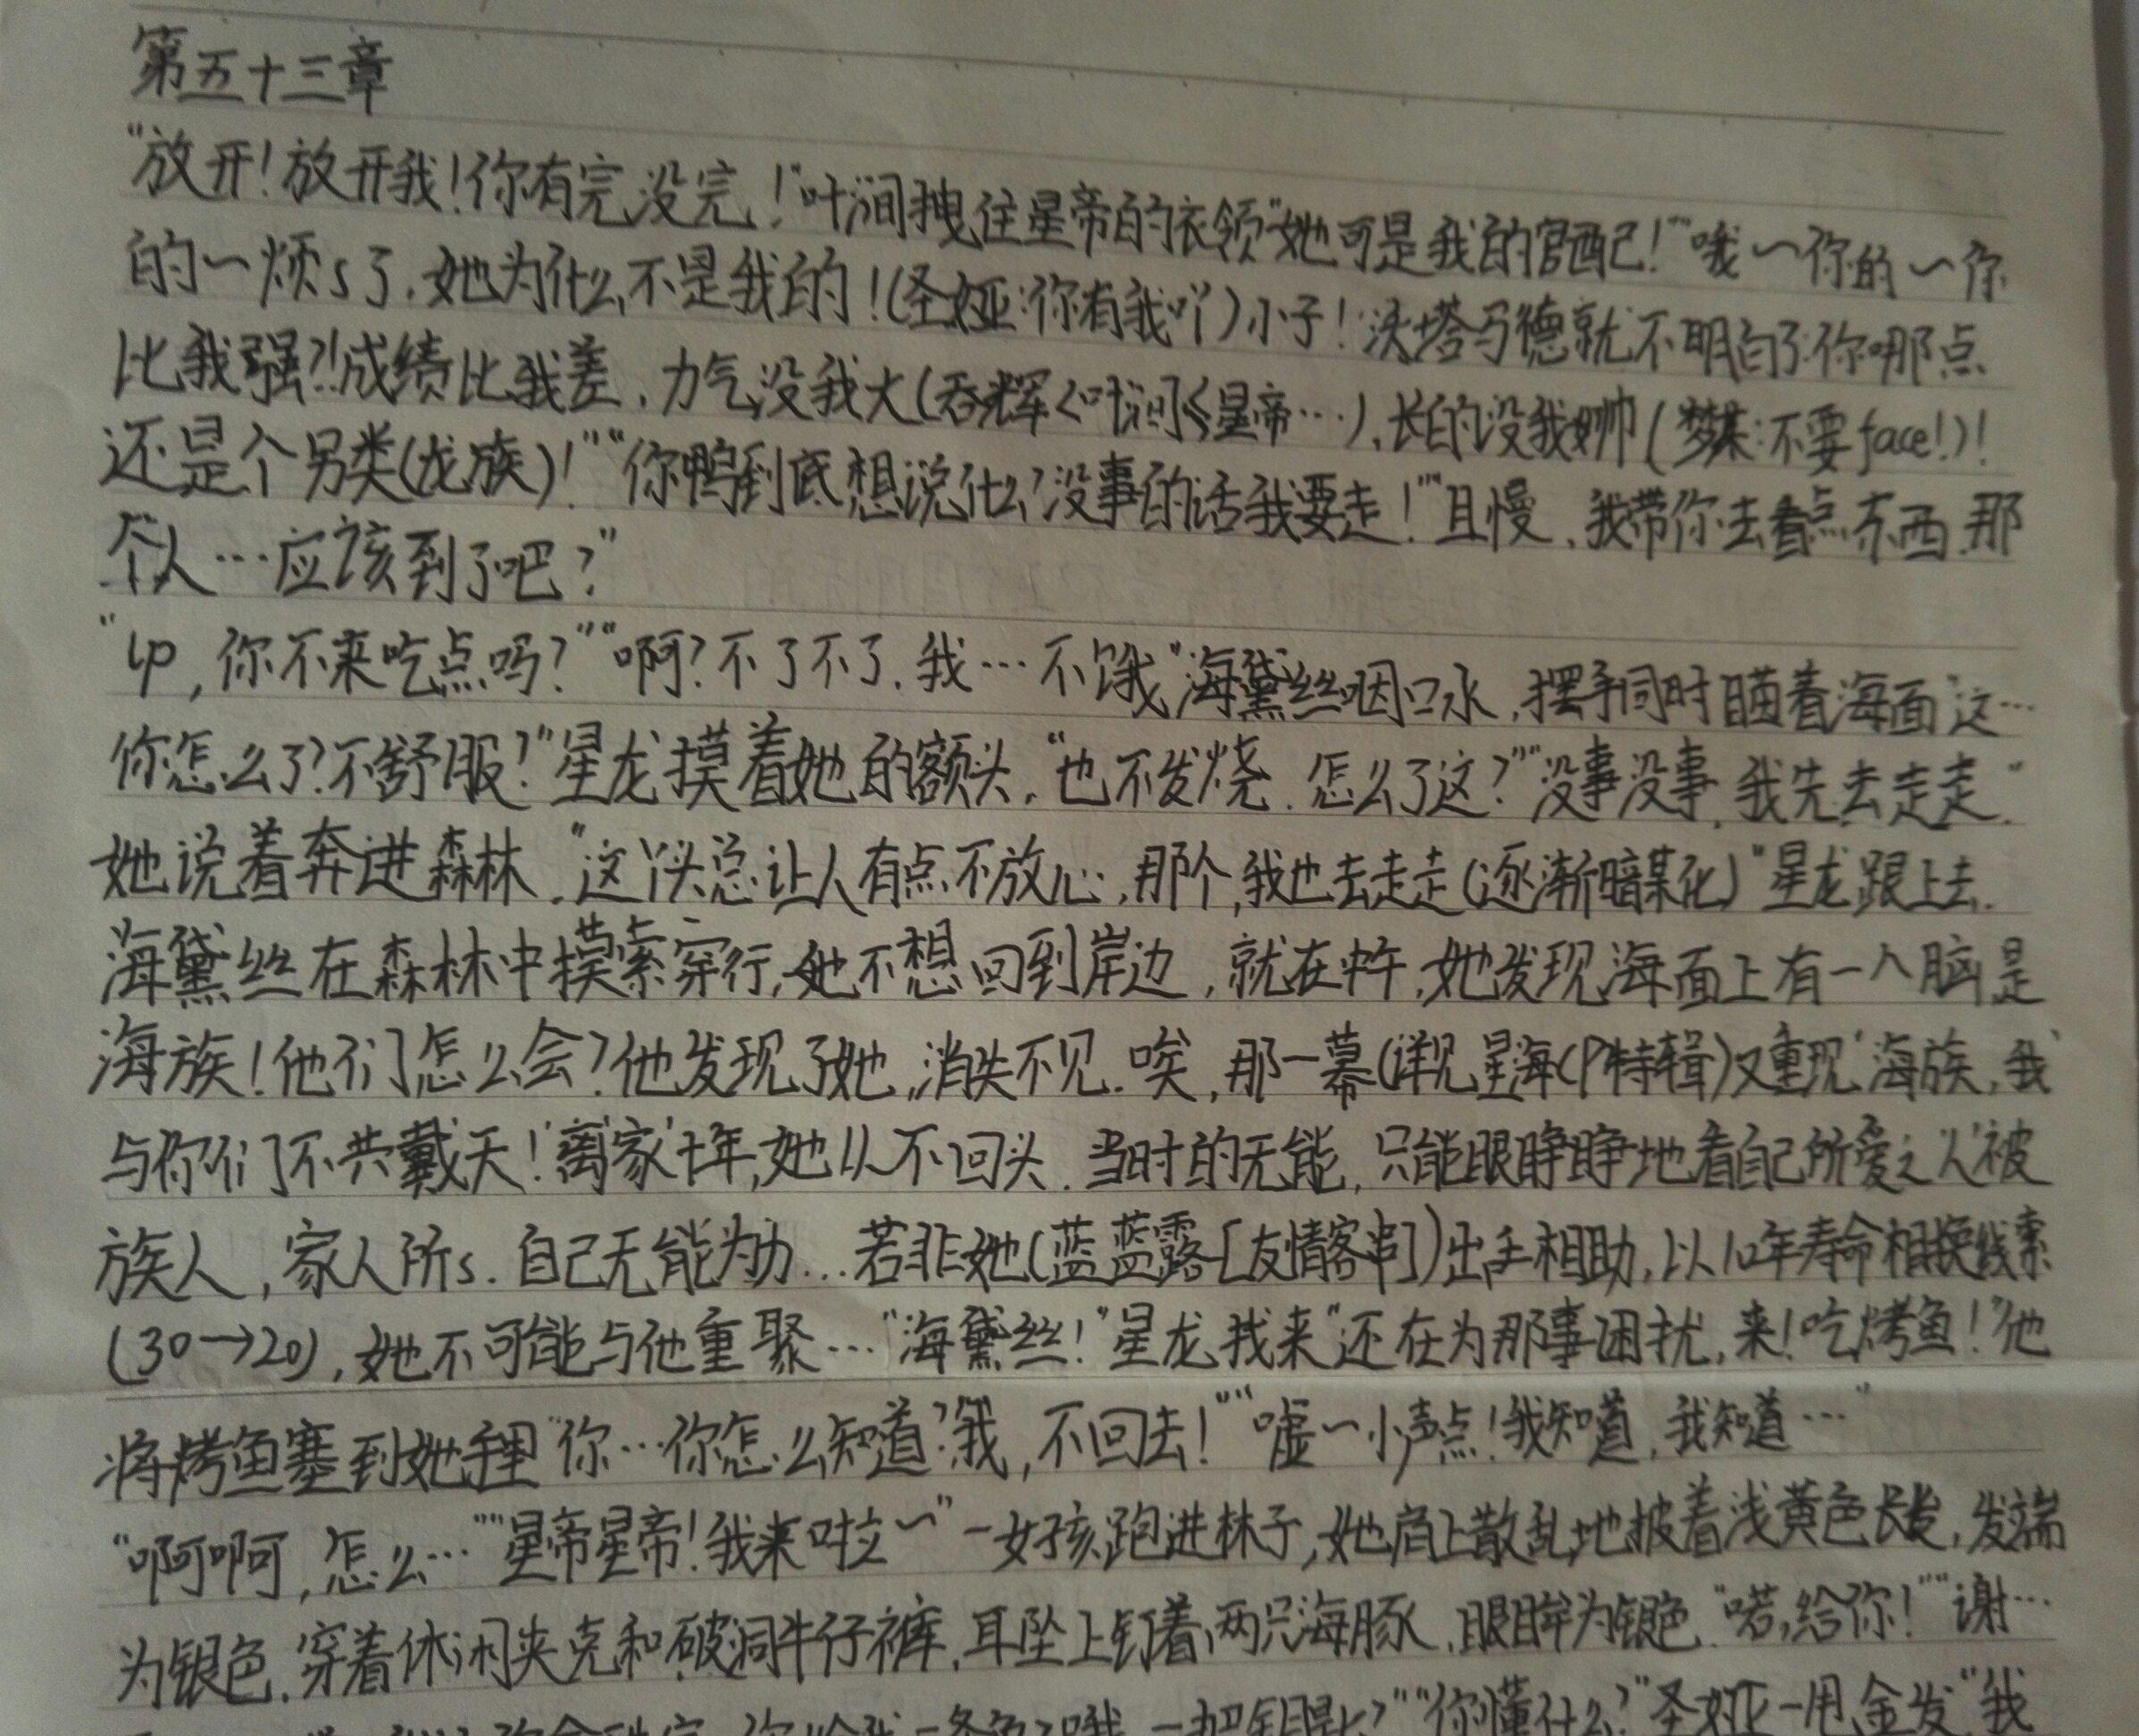 第五十三章
“放开！放开我！你有完没完！”叶涧拽住星帝的衣领“她可是我的官配！”“哦～你的～你
的～烦s了，她为什么不是我的！(圣娅:你有我吖)小子！決塔马德就不明白了你哪点
比我强?!成绩比我差，力气没我大(吞辉<叶涧<星帝…)，长的没我帅(梦某:不要face!)！
还是个另类(龙族)！”“你鸭到底想说什么?没事的话我要走！”“且慢，我带你去看点东西，那
个人…应该到了吧？”
你不来吃点吗？”“啊？不了不了，我…不饿”海黛丝咽口水，摆手同时瞄着海面“这…
你怎么了？不舒服？”星龙摸着她的额头，“也不发烧，怎么了这？”“没事没事，我先去走走”
她说着奔进森林，“这丫头总让人有点不放心，那个，我也去走走(逐渐暗某化)”星龙跟上去.
海黛丝在森林中摸索穿行，她不想回到岸边，就在中午，她发现海面上有一个脑是
海族！他们怎么会？他发现了她，消失不见.唉，那一幕(详见星海CP特辑)又重现‘海族，我
与你们不共戴天！’离‘家’十年，她从不回头.当时的无能，只能眼睁睁地看自己所爱之‘人’被
族人，家人所s.自己无能为力…若非她(蓝蓝露[友情客串])出手相助，以10年寿命相换线索
(30→20)，她不可能与他重聚…“海黛丝！”星龙找来“还在为那事困扰，来！吃烤鱼！”他
将烤鱼塞到她手里“你…你怎么知道？我，不回去！”“嘘～小声点！我知道，我知道…”
“啊啊，怎么…”“星帝星帝！我来啦～”一女孩跑进林子，她肩上散乱地披着浅黄色长发，发端
为银色，穿着休闲夹克和破洞牛仔裤，耳坠上钉着两只海豚，眼眸为银色“喏，给你！”“谢…
你给我一条鱼？哦，一把钥匙？”“你懂什么？”圣娅一甩金发“我